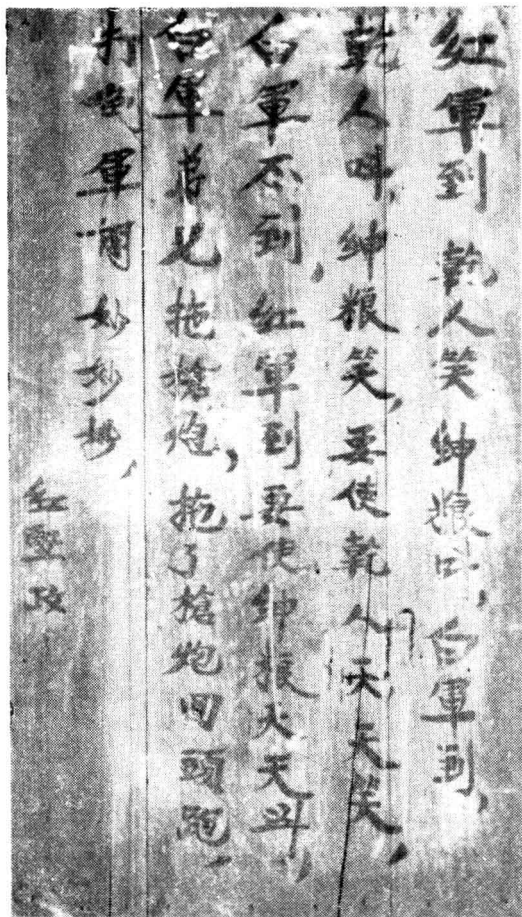 紅軍到 乾人笑 紳粮叫,白軍到,
乾人叫,紳粮笑,要使乾人天天笑,
白軍不到,紅軍到要使紳粮天天叫,
白軍弟兄拖槍炮,拖了槍炮回頭跑,
打軍閥妙妙妙,
紅堅政